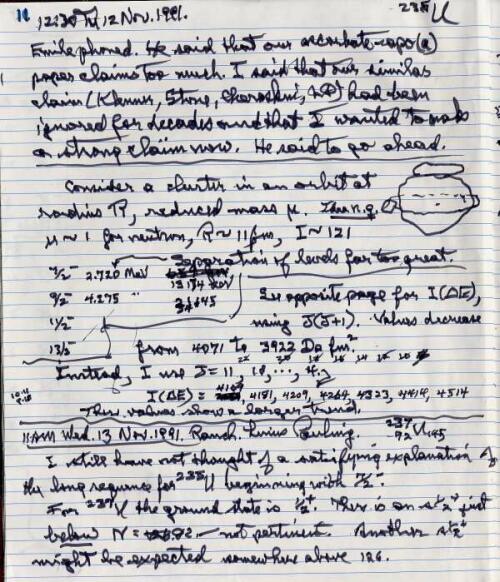 12:30 12 Nov. 1991. 235U
Emile phoned. He said that our ascorbate-apo(a)
paper claims too much. I said that our similar
claim ( Stone, ) had been
ignored for decades and that I wanted to make
a strong claim now. He said to go ahead.
Consider a cluster in an orbit at
radius R, reduced mass μ.
μ ~ 1 for neutron, R ~ 11 fm, I ~ 121
Separation of levels far too great.
7/2- 2.720 MeV
9/2- 4.275 "
11/2-
13/2-
See opposite page for I(ΔE),
using J(J+1). Values decrease
from 4071 to 3922 Da fm2.
Instead, I use J = 11, 10, ..., 4.
I(ΔE) = 4181, 4209, 4264, 4323, 4414, 4514
These values show a larger trend.
11 AM Wed. 13 Nov. 1991. Ranch. Linus Pauling. U 145
I still have not thought of a satisfying explanation of
the long sequence for 235U beginning with 7/2-.
For U the ground state is 1/2+. There is an s1/2+ just
below N = not pertinent. Another s1/2+
might be expected somewhere above 126.